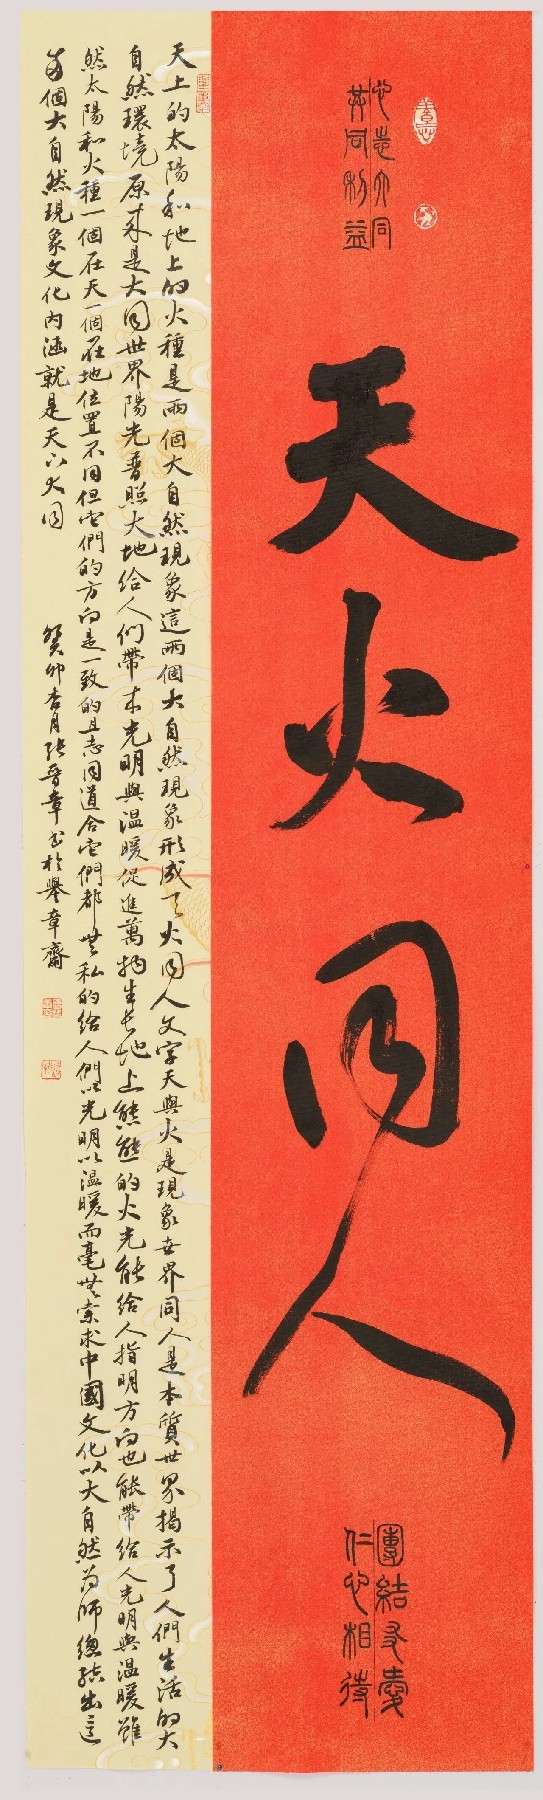 心志大同
共同利益
天火同人
團結友愛
仁心相待
天上的太陽和地上的火種是兩個大自然現象這兩個大自然現象形成了火同人文字天與火是現象世界同人是本質世界揭示了人們生活的大
自然環境原来是大同世界陽光普照大地给人们帶来光明與温暖促進萬物生长地上熊熊的火光能给人指明方向也能帶给人光明與温暖雖
然太陽和火種一個在天一個在地位置不同但它們的方向是一致的且志同道合它們都無私的给人們以光明以温暖而毫無索求中國文化以大自然为师總结出這
兩個大自然現象文化内涵就是天下大同
癸卯杏月张晋章书於舉章齋